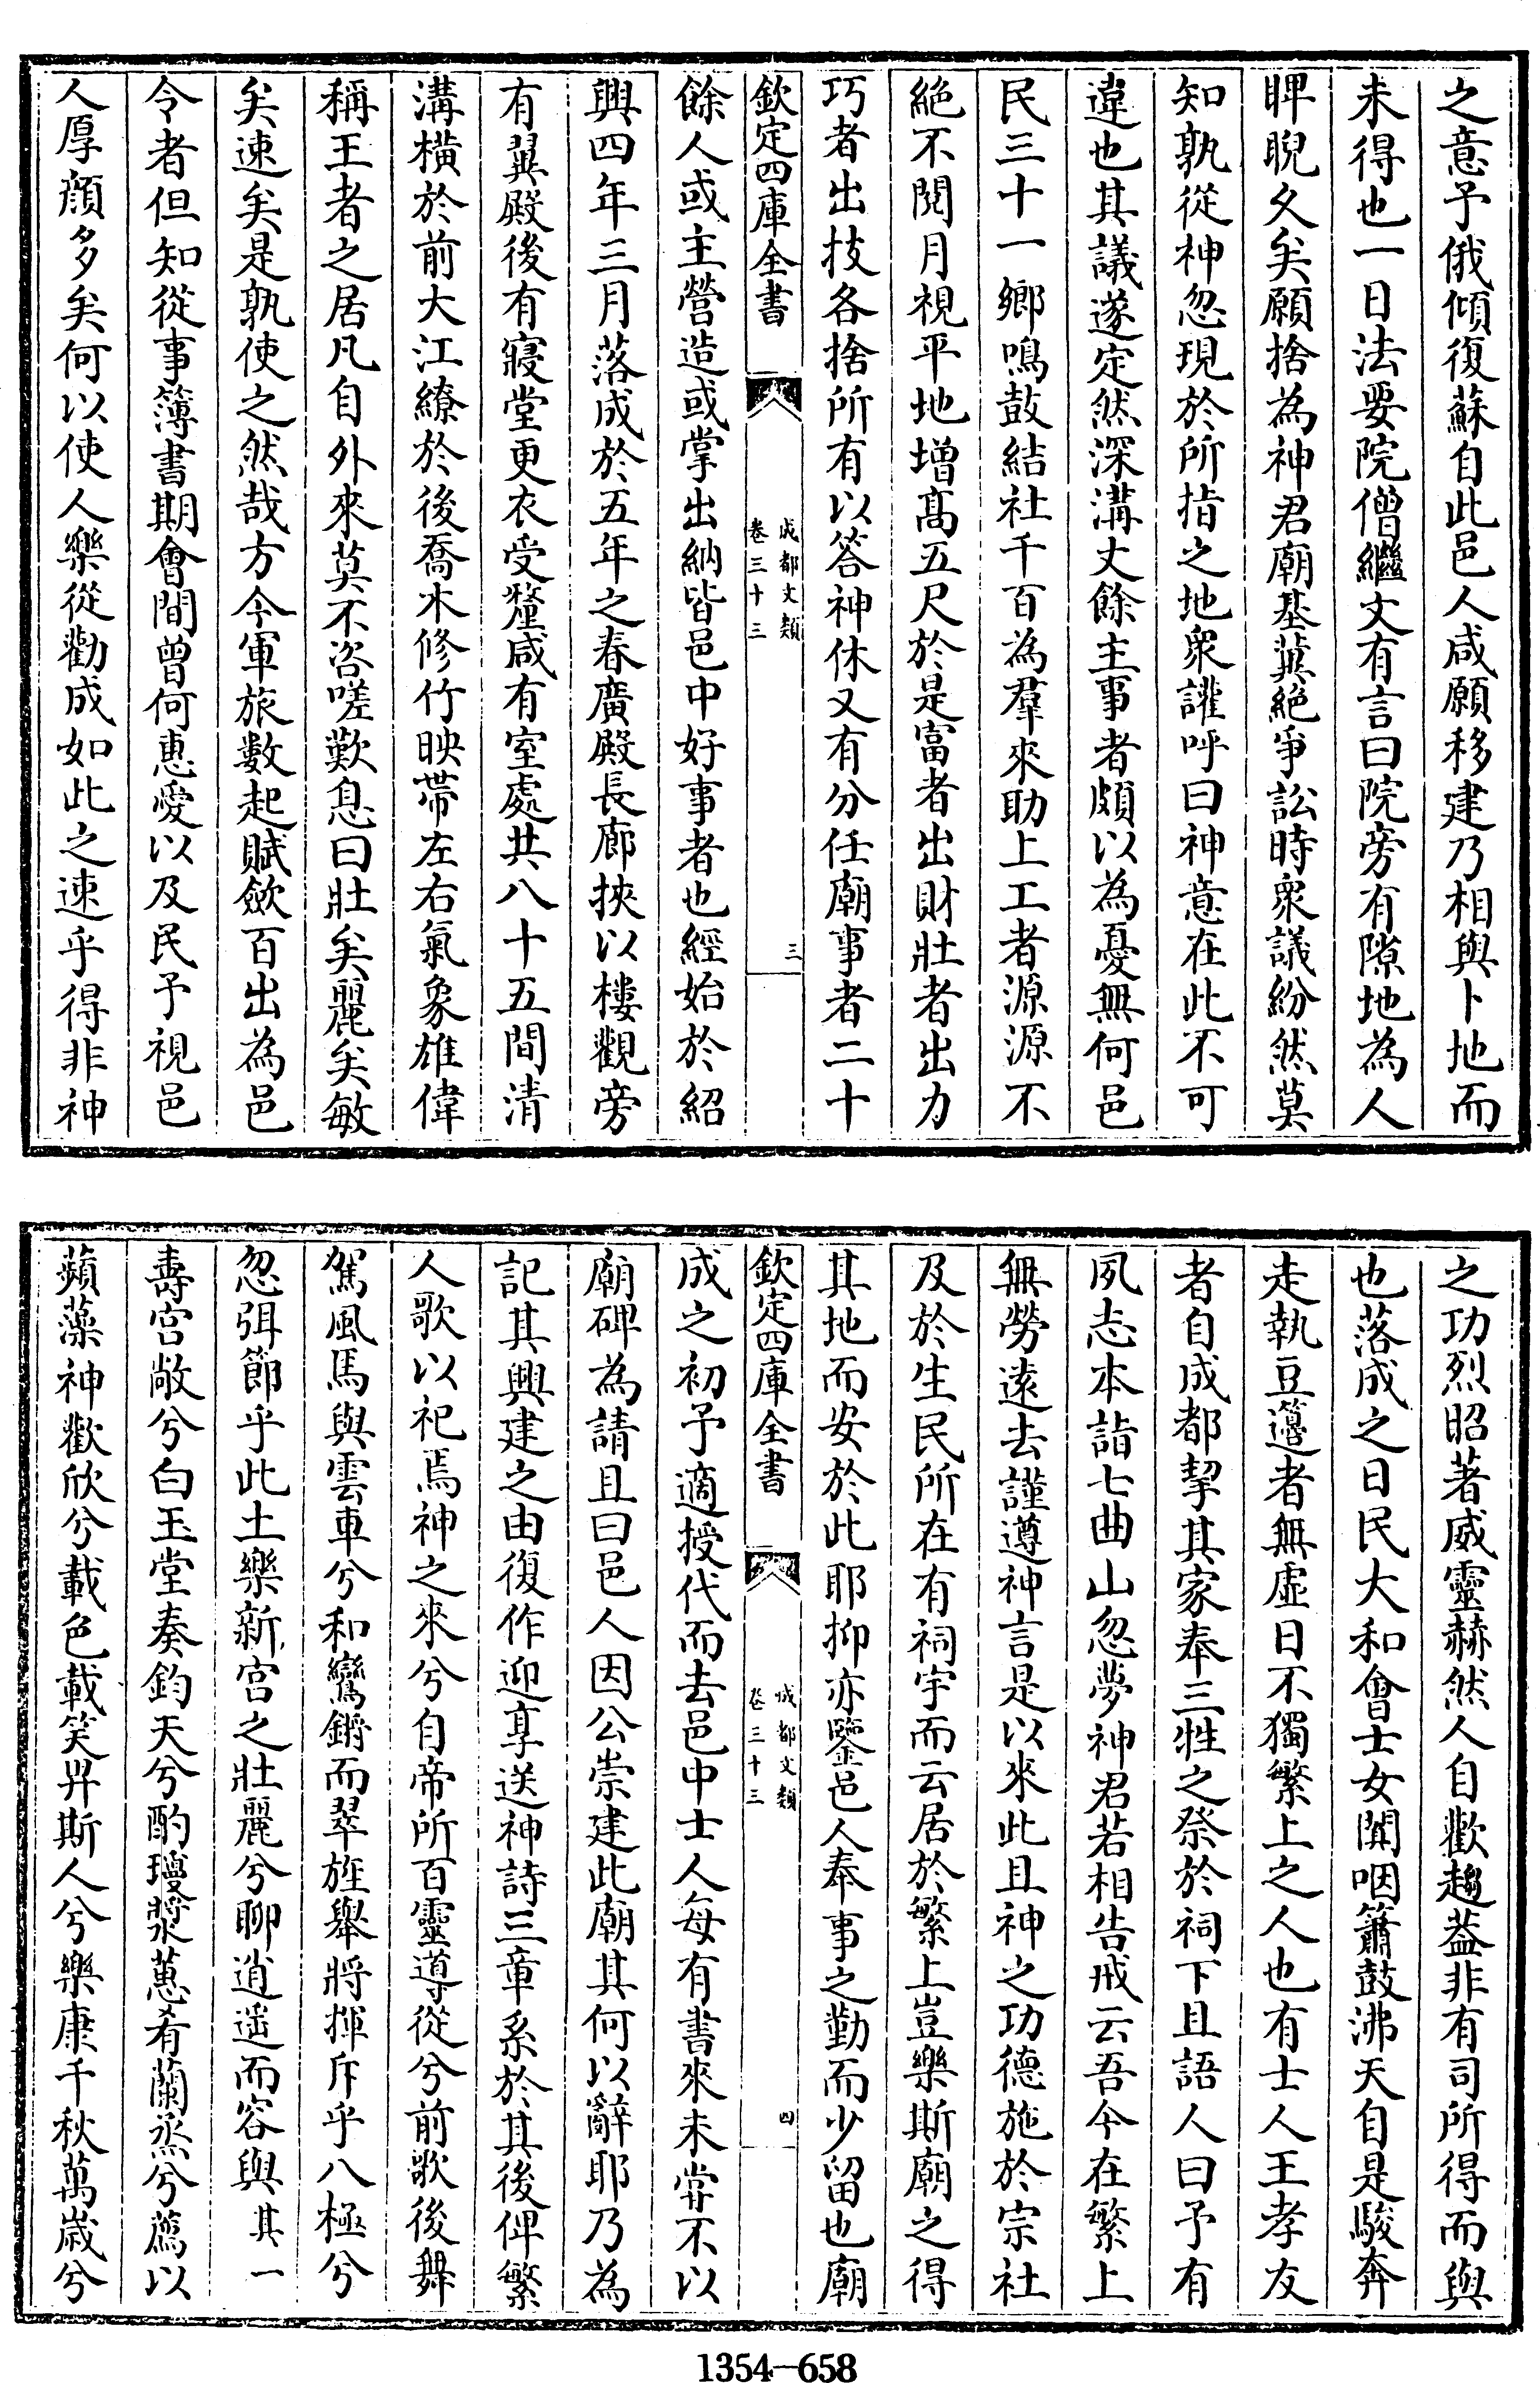 之意予俄傾復蘇自此邑人咸願移建乃相與卜地而
未得也一日法要院僧繼文有言曰院旁有隙地為人
睥睨久矣願捨為神君廟基冀絶爭訟時衆議紛然莫
知孰從神忽現於所指之地衆讙呼曰神意在此不可
違也其議遂定然深溝丈餘主事者頗以為憂無何邑
民三十一鄉鳴鼓結社千百為羣來助上工者源源不
絶不閱月視平地增髙五尺於是富者出財壯者出力
巧者出技各捨所有以答神休又有分任廟事者二十
欽定四庫全書
成都文類
卷三十三
三
餘人或主營造或掌出納皆邑中好事者也經始於紹
興四年三月落成於五年之春廣殿長廊挾以樓觀旁
有翼殿後有寢堂更衣受釐咸有室處共八十五間清
溝横於前大江繚於後喬木修竹映帶左右氣象雄偉
稱王者之居凡自外來莫不咨嗟歎息曰壯矣麗矣敏
矣速矣是孰使之然哉方今軍旅數起賦歛百出為邑
令者但知從事簿書期會間曾何惠愛以及民予視邑
人厚顔多矣何以使人樂從勸成如此之速乎得非神
之功烈昭著威靈赫然人自歡趨葢非有司所得而與
也落成之日民大和會士女闐咽簫鼓沸天自是駿奔
走執豆籩者無虚日不獨繁上之人也有士人王孝友
者自成都挈其家奉三牲之祭於祠下且語人曰予有
夙志本詣七曲山忽夢神君若相告戒云吾今在繁上
無勞逺去謹遵神言是以來此且神之功德施於宗社
及於生民所在有祠宇而云居於繁上豈樂斯廟之得
其地而安於此耶抑亦鑒邑人奉事之勤而少留也廟
欽定四庫全書
成都文類
卷三十三
四
成之初予適授代而去邑中士人每有書來未甞不以
廟碑為請且曰邑人因公崇建此廟其何以辭耶乃為
記其興建之由復作迎享送神詩三章系於其後俾繁
人歌以祀焉神之來兮自帝所百靈導從兮前歌後舞
駕風馬與雲車兮和鸞鏘而翠旌舉將揮斥乎八極兮
忽弭節乎此土樂新宫之壯麗兮聊逍遥而容與其一
壽宫敞兮白玉堂奏鈞天兮酌瓊漿蕙肴蘭烝兮薦以
蘋藻神歡欣兮載色載笑畀斯人兮樂康千秋萬歲兮
1354—658